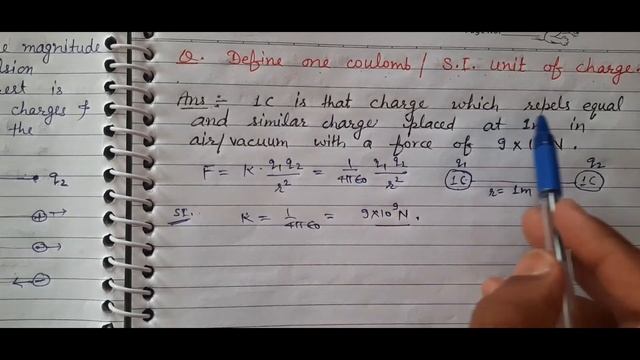 e magnitude
lsion
est is
charges &
the
q2
Q. Define one coulomb / S.I. unit of charge.
Ans :- 1C is that charge which repels equal
and similar charge placed at 1m in
air/vacuum with a force of 9 × 10 N.
F = K . q1 q2 / r² = 1 / 4πε0 q1 q2 / r²
q1 q2
1C r = 1m 1C
SI. K = 1 / 4πε0 = 9×10⁹ N .